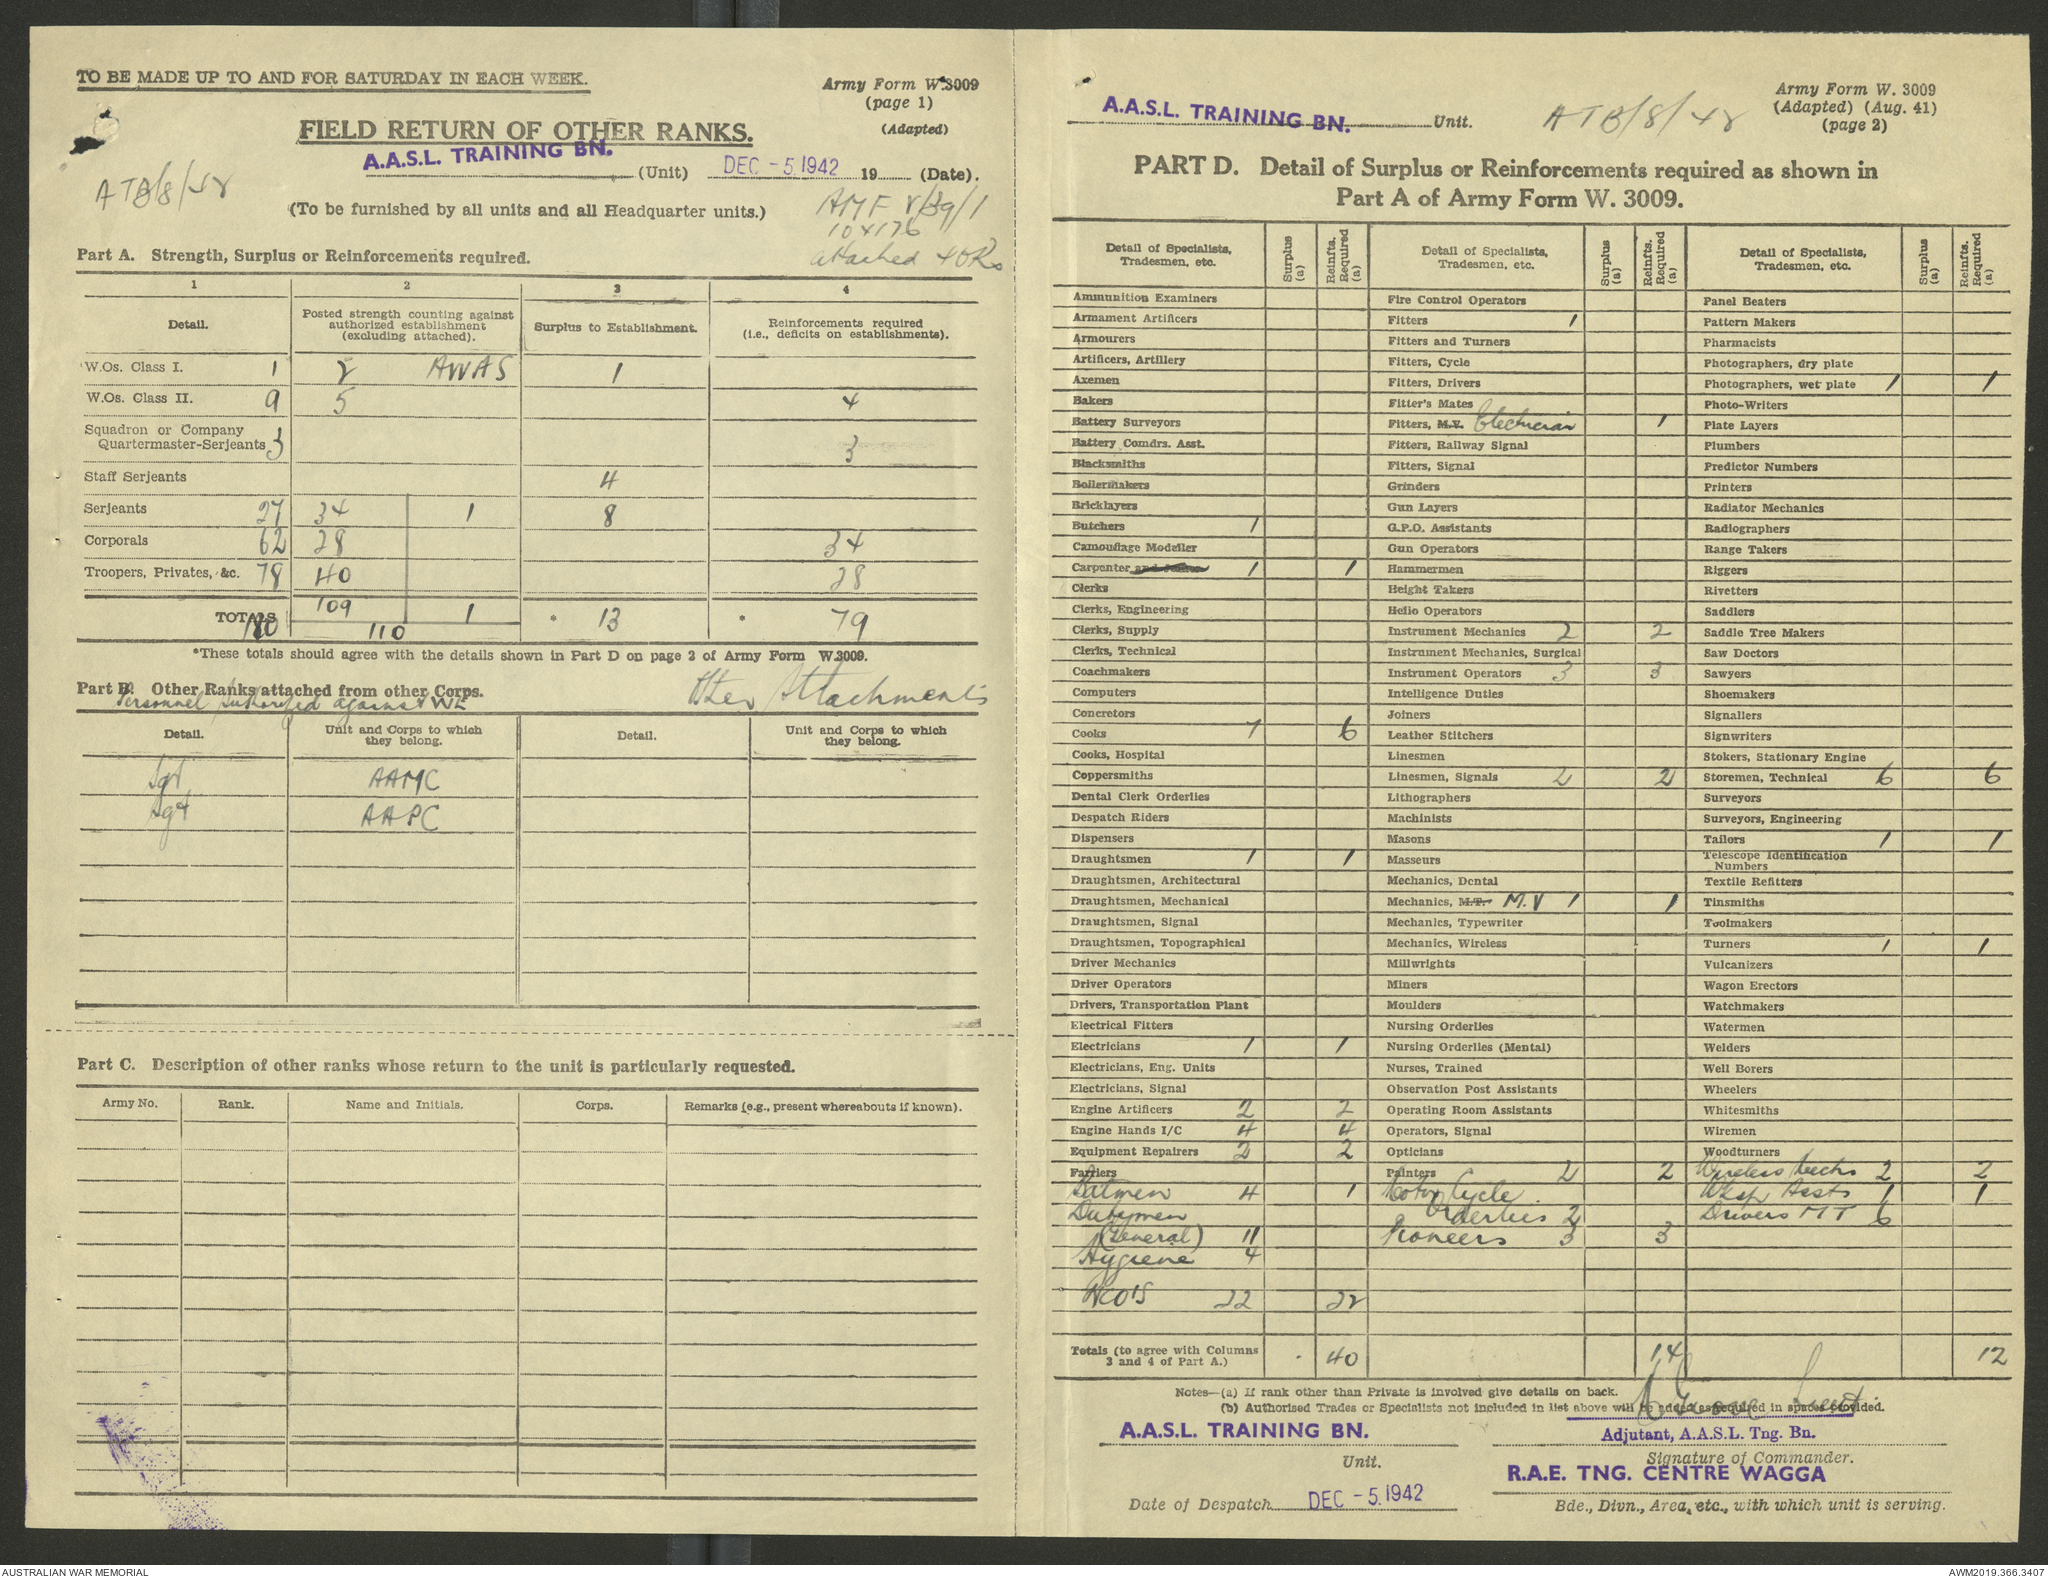 TO BE MADE UP TO AND FOR SATURDAY IN EACH WEEK.
Army Form W.3009
(page 1)
(Adapted)
FIELD RETURN OF OTHER RANKS.
A.A.S.L. TRAINING BN. (Unit) DEC -5.1942 19 (Date).
ATB/8/42
(To be furnished by all units and all Headquarter units.)
attached 4 ORs
Part A. Strength, Surplus or Reinforcements required.
1 2 3 4
Detail. Posted strength counting against authorized establishment (excluding attached). Surplus to Establishment. Reinforcements required (i.e., deficits on establishments).
W.Os. Class I. 1 2 AWAS 1
W.Os. Class II. 9 5 4
Squadron or Company Quartermaster-Serjeants 3 3
Staff Serjeants 4
Serjeants 27 34 1 8
Corporals 62 28 34
Troopers, Privates, &c. 78 40 38
TOTALS 180 109 1 110 * 13 * 79
*These totals should agree with the details shown in Part D on page 2 of Army Form W.3009.
Part B. Other Ranks attached from other Corps.
Personnel Authorized against WE
Other Attachments
Detail. Unit and Corps to which they belong. Detail. Unit and Corps to which they belong.
Sgt AAMC
Sgt AAPC
Part C. Description of other ranks whose return to the unit is particularly requested.
Army No. Rank. Name and Initials. Corps. Remarks (e.g., present whereabouts if known).
A.A.S.L. TRAINING BN. Unit. ATB/8/42
Army Form W. 3009
(Adapted) (Aug. 41)
(page 2)
PART D. Detail of Surplus or Reinforcements required as shown in
Part A of Army Form W. 3009.
Detail of Specialists, Tradesmen, etc. Surplus (a) Reinfts. Required (a)
Ammunition Examiners
Armament Artificers
Armourers
Artificers, Artillery
Axemen
Bakers
Battery Surveyors
Battery Comdrs. Asst.
Blacksmiths
Boilermakers
Bricklayers
Butchers 1
Camouflage Modeller
Carpenter and Joiner 1 1
Clerks
Clerks, Engineering
Clerks, Supply
Clerks, Technical
Coachmakers
Computers
Concretors
Cooks 7 6
Cooks, Hospital
Coppersmiths
Dental Clerk Orderlies
Despatch Riders
Dispensers
Draughtsmen 1 1
Draughtsmen, Architectural
Draughtsmen, Mechanical
Draughtsmen, Signal
Draughtsmen, Topographical
Driver Mechanics
Driver Operators
Drivers, Transportation Plant
Electrical Fitters
Electricians 1 1
Electricians, Eng. Units
Electricians, Signal
Engine Artificers 2 2
Engine Hands I/C 4 4
Equipment Repairers 2 2
Farriers
Batmen 4 1
Dutymen
(General) 11
Hygiene 4
NCO'S 22 22
Totals (to agree with Columns 3 and 4 of Part A.) 40
Detail of Specialists, Tradesmen, etc. Surplus (a) Reinfts. Required (a)
Fire Control Operators
Fitters 1
Fitters and Turners
Fitters, Cycle
Fitters, Drivers
Fitter's Mates
Fitters, M.V. Electrician 1
Fitters, Railway Signal
Fitters, Signal
Grinders
Gun Layers
G.P.O. Assistants
Gun Operators
Hammermen
Height Takers
Helio Operators
Instrument Mechanics 2 2
Instrument Mechanics, Surgical
Instrument Operators 3 3
Intelligence Duties
Joiners
Leather Stitchers
Linesmen
Linesmen, Signals 2 2
Lithographers
Machinists
Masons
Masseurs
Mechanics, Dental
Mechanics, M.T. M.V 1 1
Mechanics, Typewriter
Mechanics, Wireless
Millwrights
Miners
Moulders
Nursing Orderlies
Nursing Orderlies (Mental)
Nurses, Trained
Observation Post Assistants
Operating Room Assistants
Operators, Signal
Opticians
Painters 2 2
Motor Cycle
Orderlies 2
Pioneers 3 3
14
Detail of Specialists, Tradesmen, etc. Surplus (a) Reinfts. Required (a)
Panel Beaters
Pattern Makers
Pharmacists
Photographers, dry plate
Photographers, wet plate 1 1
Photo-Writers
Plate Layers
Plumbers
Predictor Numbers
Printers
Radiator Mechanics
Radiographers
Range Takers
Riggers
Rivetters
Saddlers
Saddle Tree Makers
Saw Doctors
Sawyers
Shoemakers
Signallers
Signwriters
Stokers, Stationary Engine
Storemen, Technical 6 6
Surveyors
Surveyors, Engineering
Tailors 1 1
Telescope Identification Numbers
Textile Refitters
Tinsmiths
Toolmakers
Turners 1 1
Vulcanizers
Wagon Erectors
Watchmakers
Watermen
Welders
Well Borers
Wheelers
Whitesmiths
Wiremen
Woodturners
Wireless Mechs 2 2
Wksp Assts 1 1
Drivers MT 6
12
Notes—(a) If rank other than Private is involved give details on back.
(b) Authorised Trades or Specialists not included in list above will be added as required in spaces provided.
Lieut
A.A.S.L. TRAINING BN.
Unit.
Adjutant, A.A.S.L. Tng. Bn.
Signature of Commander.
R.A.E. TNG. CENTRE WAGGA
Date of Despatch DEC -5.1942
Bde., Divn., Area, etc., with which unit is serving.
AUSTRALIAN WAR MEMORIAL
AWM2019.366.3407